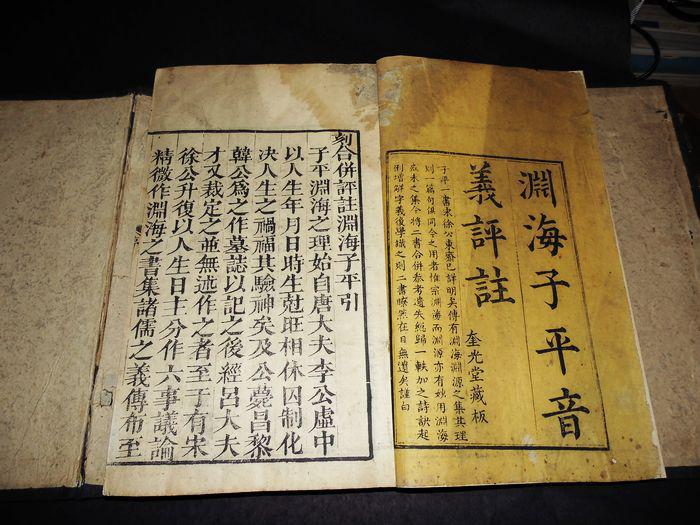 淵海子平音
義評註
奎光堂藏板
子平一書宋徐公東齋已詳明矣傳有淵海淵源之集其理
則一篇句俱同今之用者惟宗淵海而淵源亦有妙用淵海
未之集今將二書合併參考遺失總歸一帙加之詩訣起
例增解字義後學識之則二書瞭然在目無遺矣謹白
刻合併評註淵海子平引
子平淵海之理始自唐大夫李公虛中
以人生年月日時生尅旺相休囚制化
决人生之禍福其驗神矣及公薨昌黎
韓公爲之作墓誌以記之後經呂大夫
才又裁定之並無述作之者至于有宋
徐公升復以人生日主分作六事議論
精微作淵海之書集諸儒之義傳布至